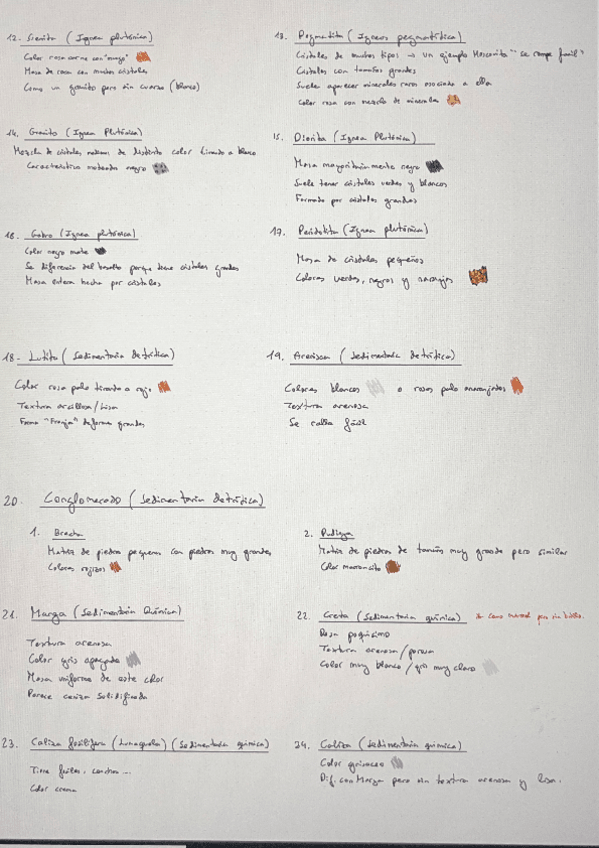 12. Sienita (Ignea plutónica)
Color rosa carne con "naranja"
Masa de rosa con muchos cristales
Como un granito pero sin cuarzo (blanco)
13. Pegmatita (Igneas pegmatítica)
Cristales de muchos tipos → un ejemplo Moscovita "se rompe fácil"
Cristales con tamaños grandes
Suele aparecer minerales raros asociado a ella
Color rosa con mezcla de minerales
14. Granito (Ignea Plutónica)
Mezcla de cristales de distinto color tirando a blanco
Característico moteado negro
15. Diorita (Ignea Plutónica)
Masa mayoritariamente negro
Suele tener cristales verdes y blancos
Formado por cristales grandes
16. Gabro (Ignea plutónica)
Color negro mate
Se diferencia del basalto porque tiene cristales grandes
Masa entera hecha por cristales
17. Peridotita (Ignea plutónica)
Masa de cristales pequeños
Colores verdes, negros y naranjas
18. Lutita (Sedimentaria detrítica)
Color rosa palo tirando a rojo
Textura arcillosa/lisa
Forma "Franja" deforme grandes
19. Arenisca (Sedimentaria detrítica)
Colores blancos o rosas palo anaranjados
Textura arenosa
Se ralla fácil
20. Conglomerado (Sedimentaria detrítica)
1. Brecha
Matriz de piedras pequeñas con piedras muy grandes
Colores rojizos
2. Pudinga
Matriz de piedras de tamaños muy grande pero similar
Color marroncito
21. Marga (Sedimentaria Química)
Textura arenosa
Color gris apagado
Masa uniforme de este color
Parece ceniza solidificada
22. Creta (Sedimentaria química)
Pesa poquísimo
Textura arenosa/porosa
Color muy blanco/gris muy claro
23. Caliza fosilífera (Lumaquela) (Sedimentaria química)
Tiene fósiles, conchas...
Color crema
24. Caliza (Sedimentaria química)
Color grisaceo
Dif. con Marga pero sin textura arenosa y lisa.